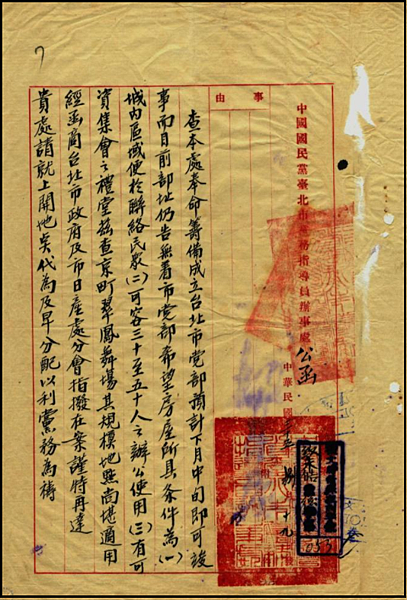 中國國民黨臺北市黨務指導員辦事處公函
中華民國
事由
查本處奉命籌備成立台北市党部預計下月中旬即可竣
事而目前部址仍告無着市党部希望房屋所具条件為(一)
城内區域便於聯絡民眾(二)可容三十至五十人之辦公使用(三)有可
資集會之禮堂茲查京町翠鳳舞場其規模地點尚堪適用
經函商台北市政府及市日產處分會指撥在案謹特再達
貴處請就上開地奌代為及早分配以利黨務為禱